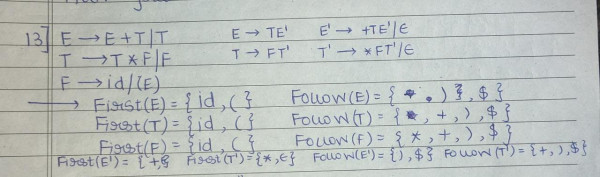 13] E → E+T/T E → TE' E' → +TE'/ε
T → T*F/F T → FT' T' → *FT'/ε
F → id/(E)
→ First(E) = {id, (} Follow(E) = { ), $}
First(T) = {id, (} Follow(T) = {*, +, ), $}
First(F) = {id, (} Follow(F) = {*, +, ), $}
First(E') = {+, ε First(T') = {*, ε} Follow(E') = {), $} Follow(T') = {+, ), $}